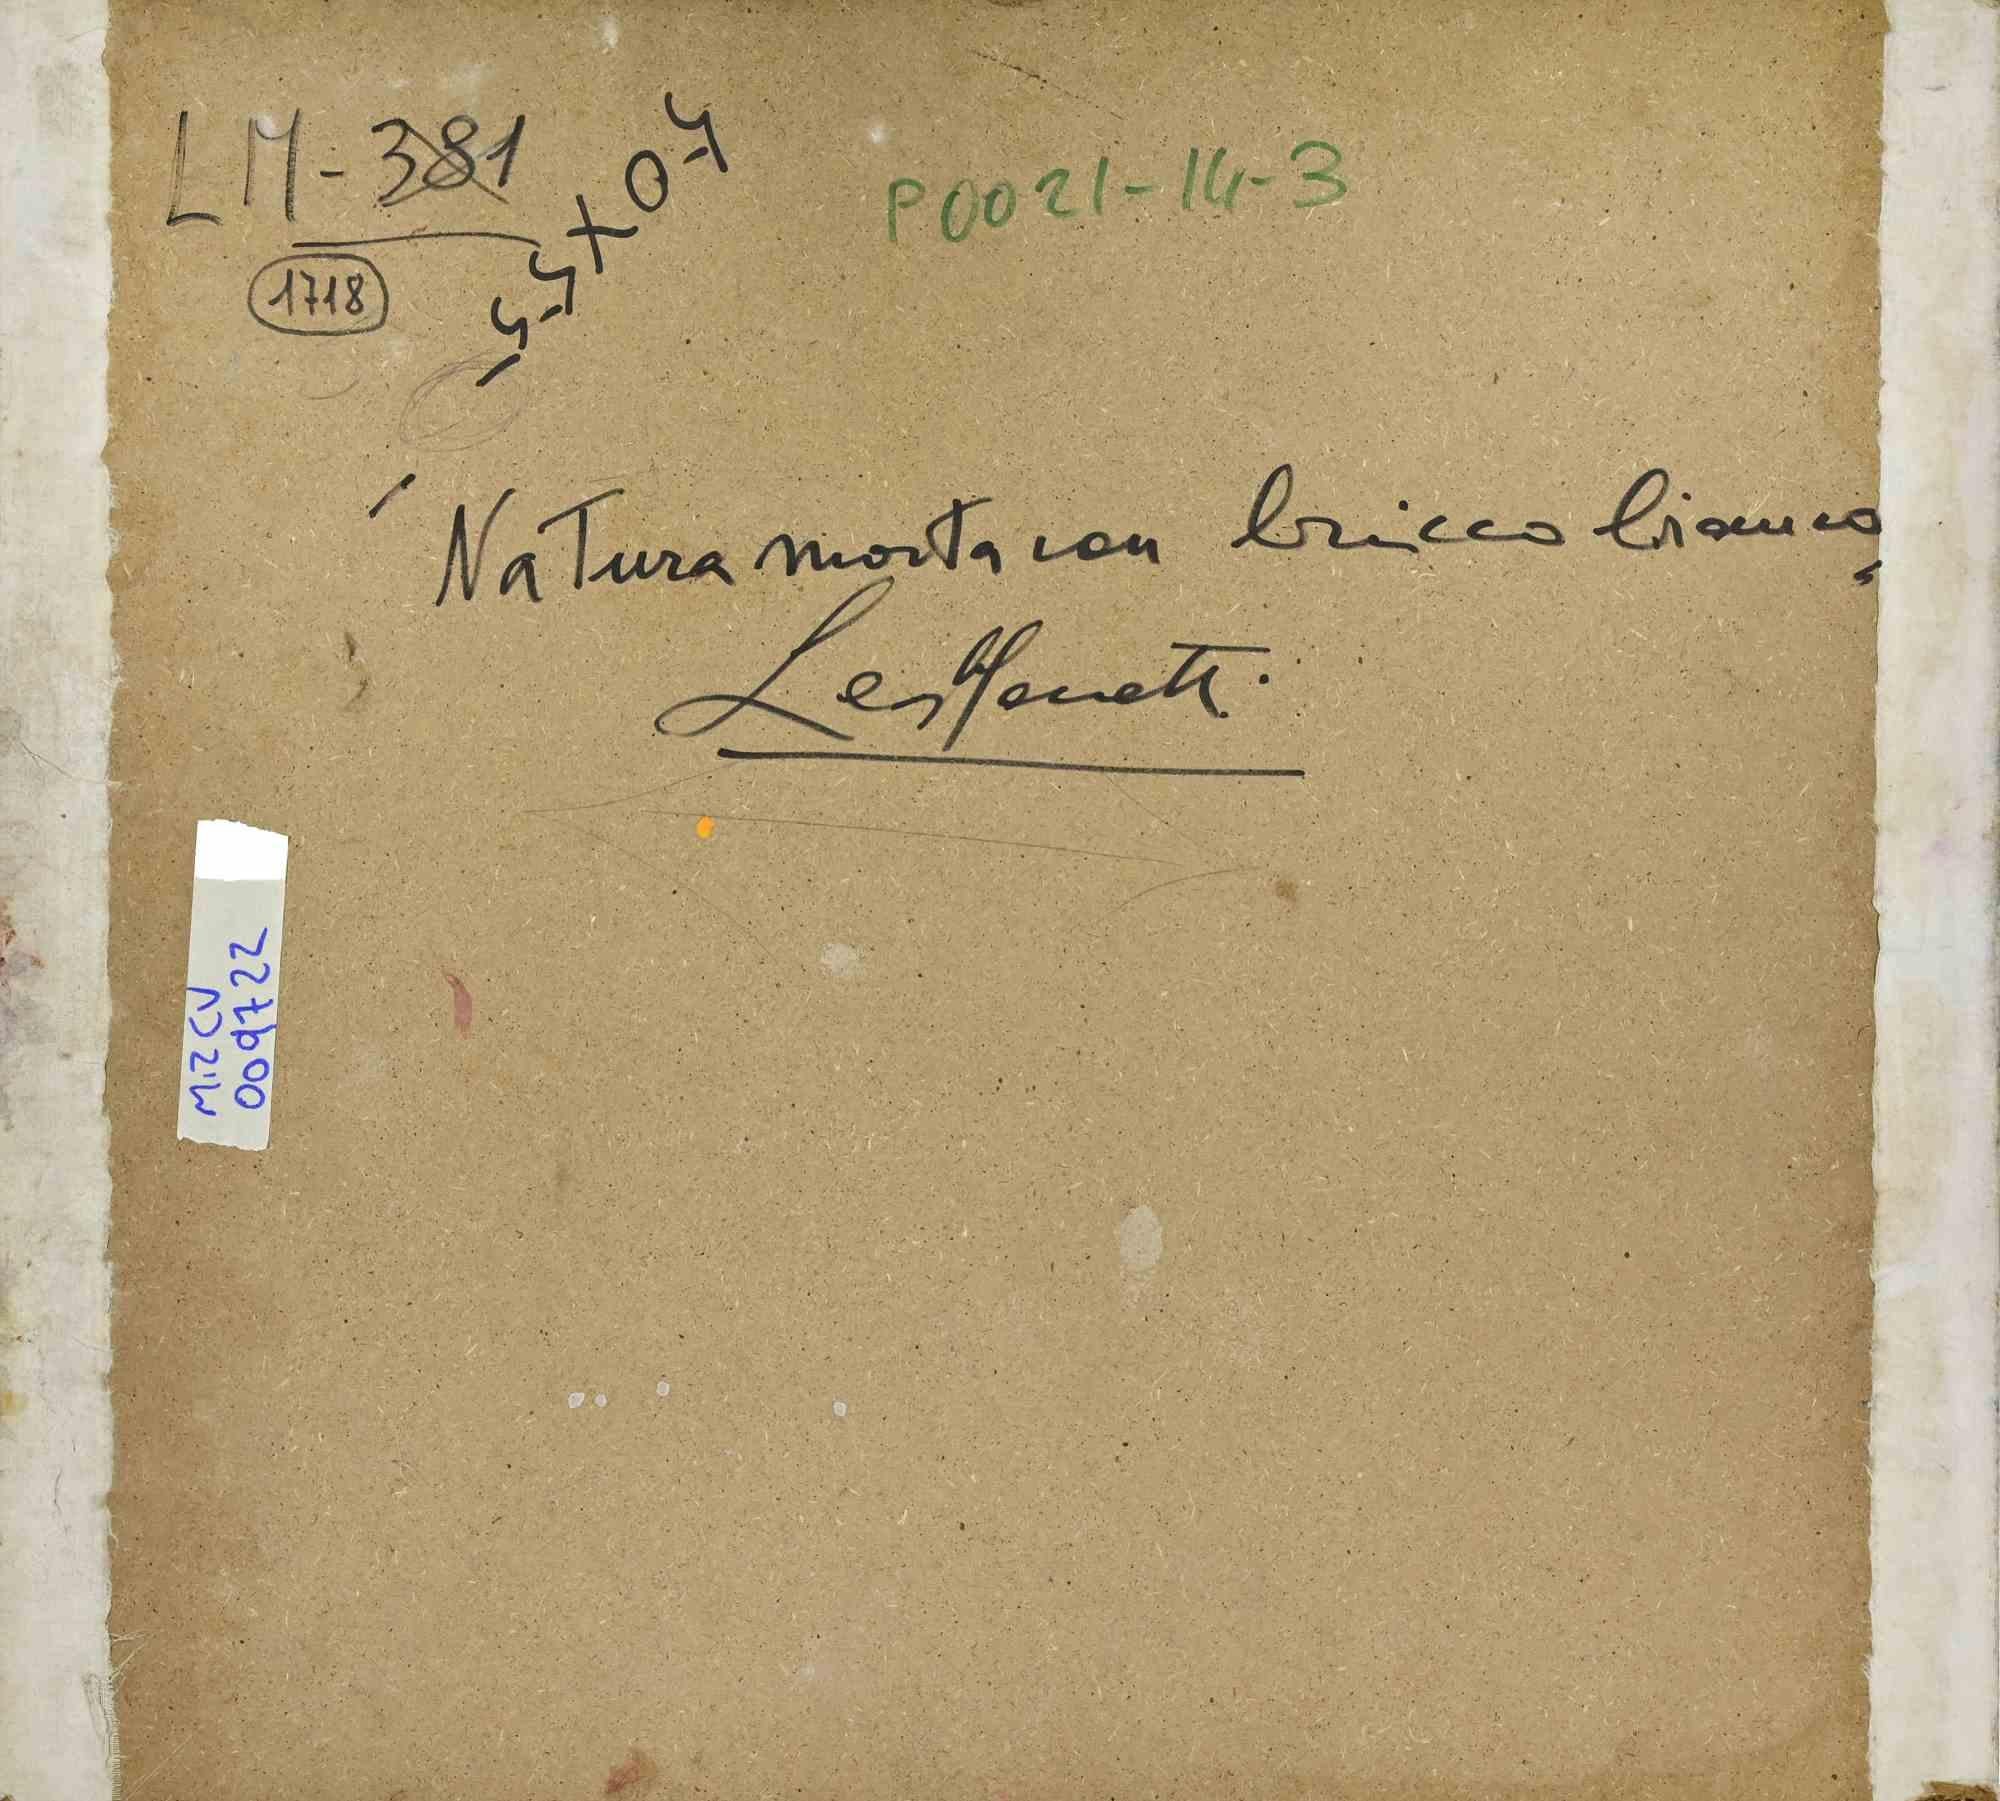 LM-381
1718
P0021-14-3
"Natura morta con bricco bianco"
Les Manetti
MIZCV
009722